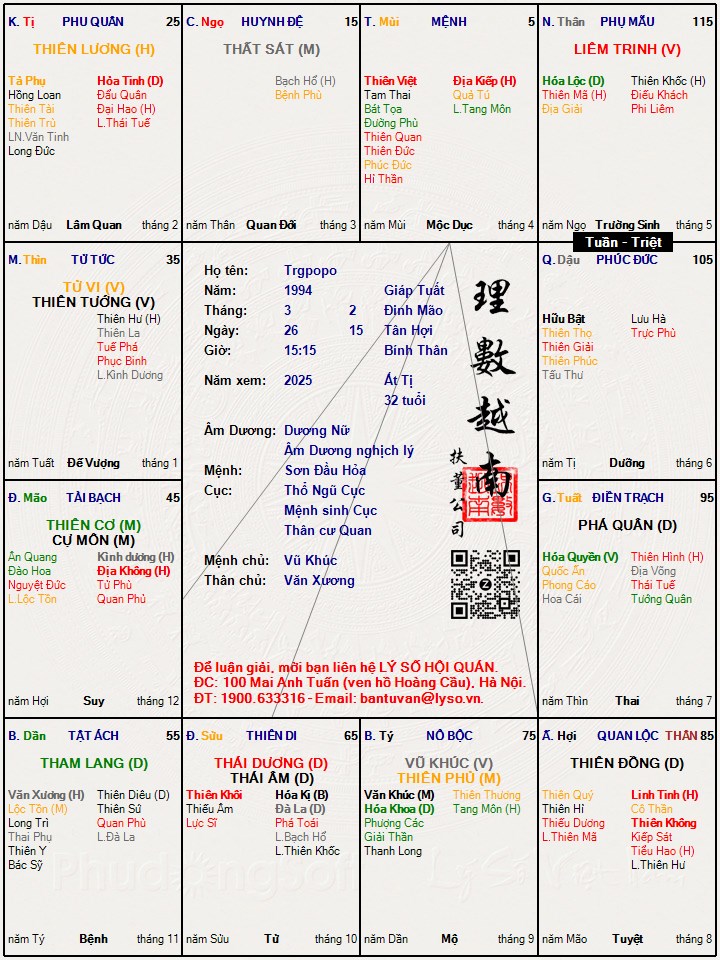 K. Tị PHU QUÂN 25
THIÊN LƯƠNG (H)
Tả Phụ Hỏa Tinh (D)
Hồng Loan Đẩu Quân
Thiên Tài Đại Hao (H)
Thiên Trù L.Thái Tuế
LN.Văn Tinh
Long Đức
năm Dậu Lâm Quan tháng 2
C. Ngọ HUYNH ĐỆ 15
THẤT SÁT (M)
Bạch Hổ (H)
Bệnh Phù
năm Thân Quan Đới tháng 3
T. Mùi MỆNH 5
Thiên Việt Địa Kiếp (H)
Tam Thai Quả Tú
Bát Tọa L.Tang Môn
Đường Phù
Thiên Quan
Thiên Đức
Phúc Đức
Hỉ Thần
năm Mùi Mộc Dục tháng 4
N. Thân PHỤ MẪU 115
LIÊM TRINH (V)
Hóa Lộc (D) Thiên Khốc (H)
Thiên Mã (H) Điếu Khách
Địa Giải Phi Liêm
năm Ngọ Trường Sinh tháng 5
Tuần - Triệt
M. Thìn TỬ TỨC 35
TỬ VI (V)
THIÊN TƯỚNG (V)
Thiên Hư (H)
Thiên La
Tuế Phá
Phục Binh
L.Kình Dương
năm Tuất Đế Vượng tháng 1
Họ tên: Trgpopo
Năm: 1994 Giáp Tuất
Tháng: 3 2 Đinh Mão
Ngày: 26 15 Tân Hợi
Giờ: 15:15 Bính Thân
Năm xem: 2025 Ất Tị
32 tuổi
Âm Dương: Dương Nữ
Âm Dương nghịch lý
Mệnh: Sơn Đầu Hỏa
Cục: Thổ Ngũ Cục
Mệnh sinh Cục
Thân cư Quan
Mệnh chủ: Vũ Khúc
Thân chủ: Văn Xương
理數越南
扶董公司
Để luận giải, mời bạn liên hệ LÝ SỐ HỘI QUÁN.
ĐC: 100 Mai Anh Tuấn (ven hồ Hoàng Cầu), Hà Nội.
ĐT: 1900.633316 - Email: bantuvan@lyso.vn.
Q. Dậu PHÚC ĐỨC 105
Hữu Bật Lưu Hà
Thiên Thọ Trực Phù
Thiên Giải
Thiên Phúc
Tấu Thư
năm Tị Dưỡng tháng 6
Đ. Mão TÀI BẠCH 45
THIÊN CƠ (M)
CỰ MÔN (M)
Ân Quang Kình dương (H)
Đào Hoa Địa Không (H)
Nguyệt Đức Tử Phù
L.Lộc Tồn Quan Phủ
năm Hợi Suy tháng 12
G. Tuất ĐIỀN TRẠCH 95
PHÁ QUÂN (D)
Hóa Quyền (V) Thiên Hình (H)
Quốc Ấn Địa Võng
Phong Cáo Thái Tuế
Hoa Cái Tướng Quân
năm Thìn Thai tháng 7
B. Dần TẬT ÁCH 55
THAM LANG (D)
Văn Xương (H) Thiên Diêu (D)
Lộc Tồn (M) Thiên Sứ
Long Trì Quan Phù
Thai Phụ L.Đà La
Thiên Y
Bác Sỹ
năm Tý Bệnh tháng 11
Đ. Sửu THIÊN DI 65
THÁI DƯƠNG (D)
THÁI ÂM (D)
Thiên Khôi Hóa Kị (B)
Thiếu Âm Đà La (D)
Lực Sĩ Phá Toái
L.Bạch Hổ
L.Thiên Khốc
năm Sửu Tử tháng 10
B. Tý NÔ BỘC 75
VŨ KHÚC (V)
THIÊN PHỦ (M)
Văn Khúc (M) Thiên Thương
Hóa Khoa (D) Tang Môn (H)
Phượng Các
Giải Thần
Thanh Long
năm Dần Mộ tháng 9
Ấ. Hợi QUAN LỘC THÂN 85
THIÊN ĐỒNG (D)
Thiên Quý Linh Tinh (H)
Thiên Hỉ Cô Thần
Thiếu Dương Thiên Không
L.Thiên Mã Kiếp Sát
Tiểu Hao (H)
L.Thiên Hư
năm Mão Tuyệt tháng 8